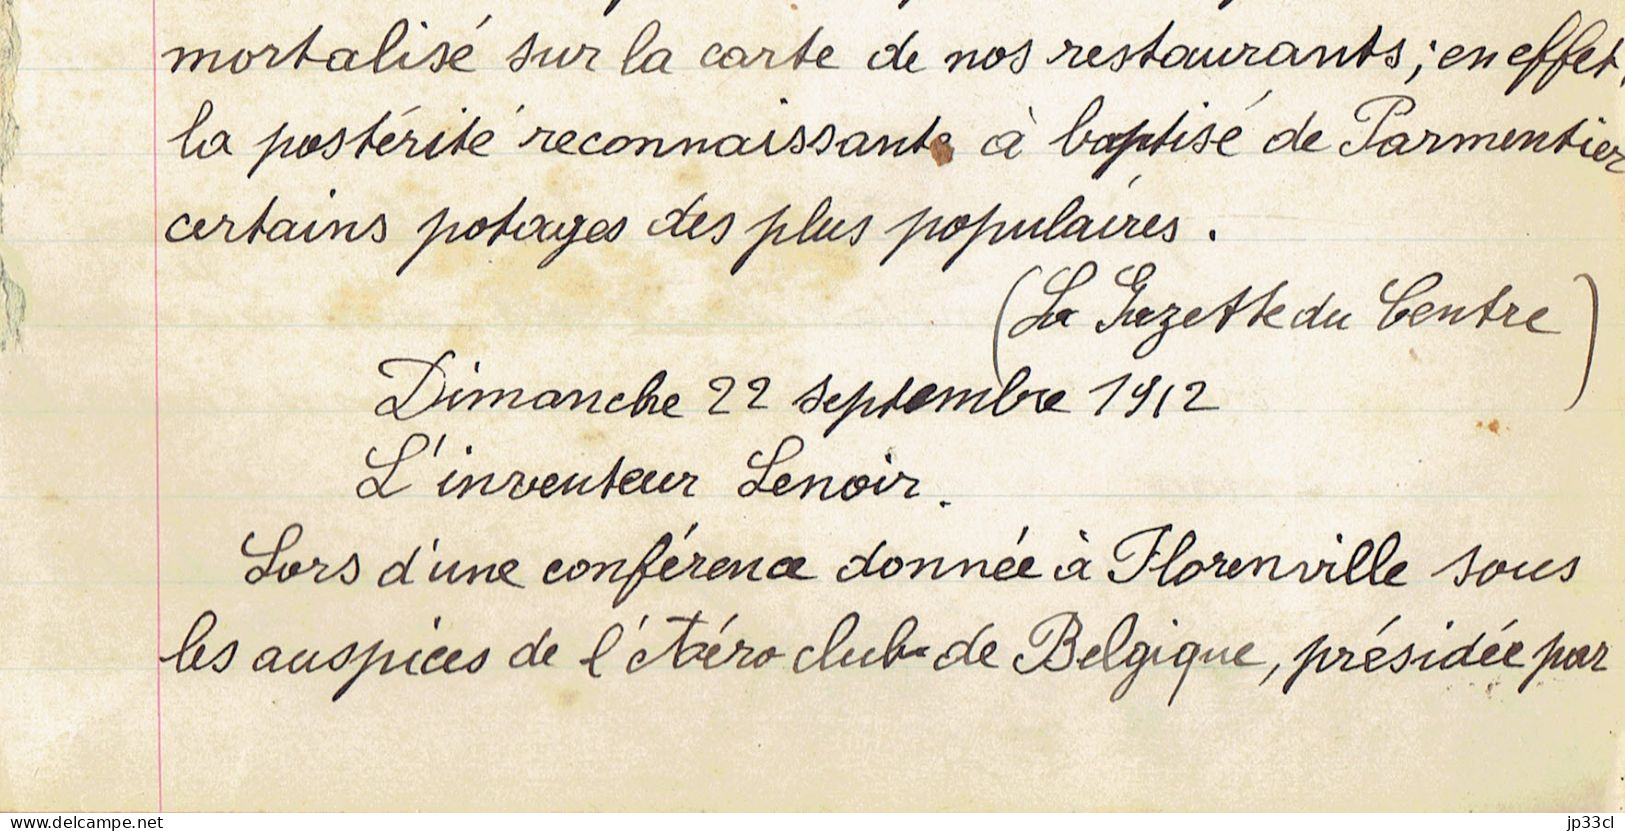 mortalisé sur la carte de nos restaurants; en effet,
la postérité reconnaissante à baptisé de Parmentier
certains potages des plus populaires.
(La Gazette du Centre)
Dimanche 22 septembre 1912
L'inventeur Lenoir.
Lors d'une conférence donnée à Florenville sous
les auspices de l'Aéro club de Belgique, présidée par
www.delcampe.net
jp33cl